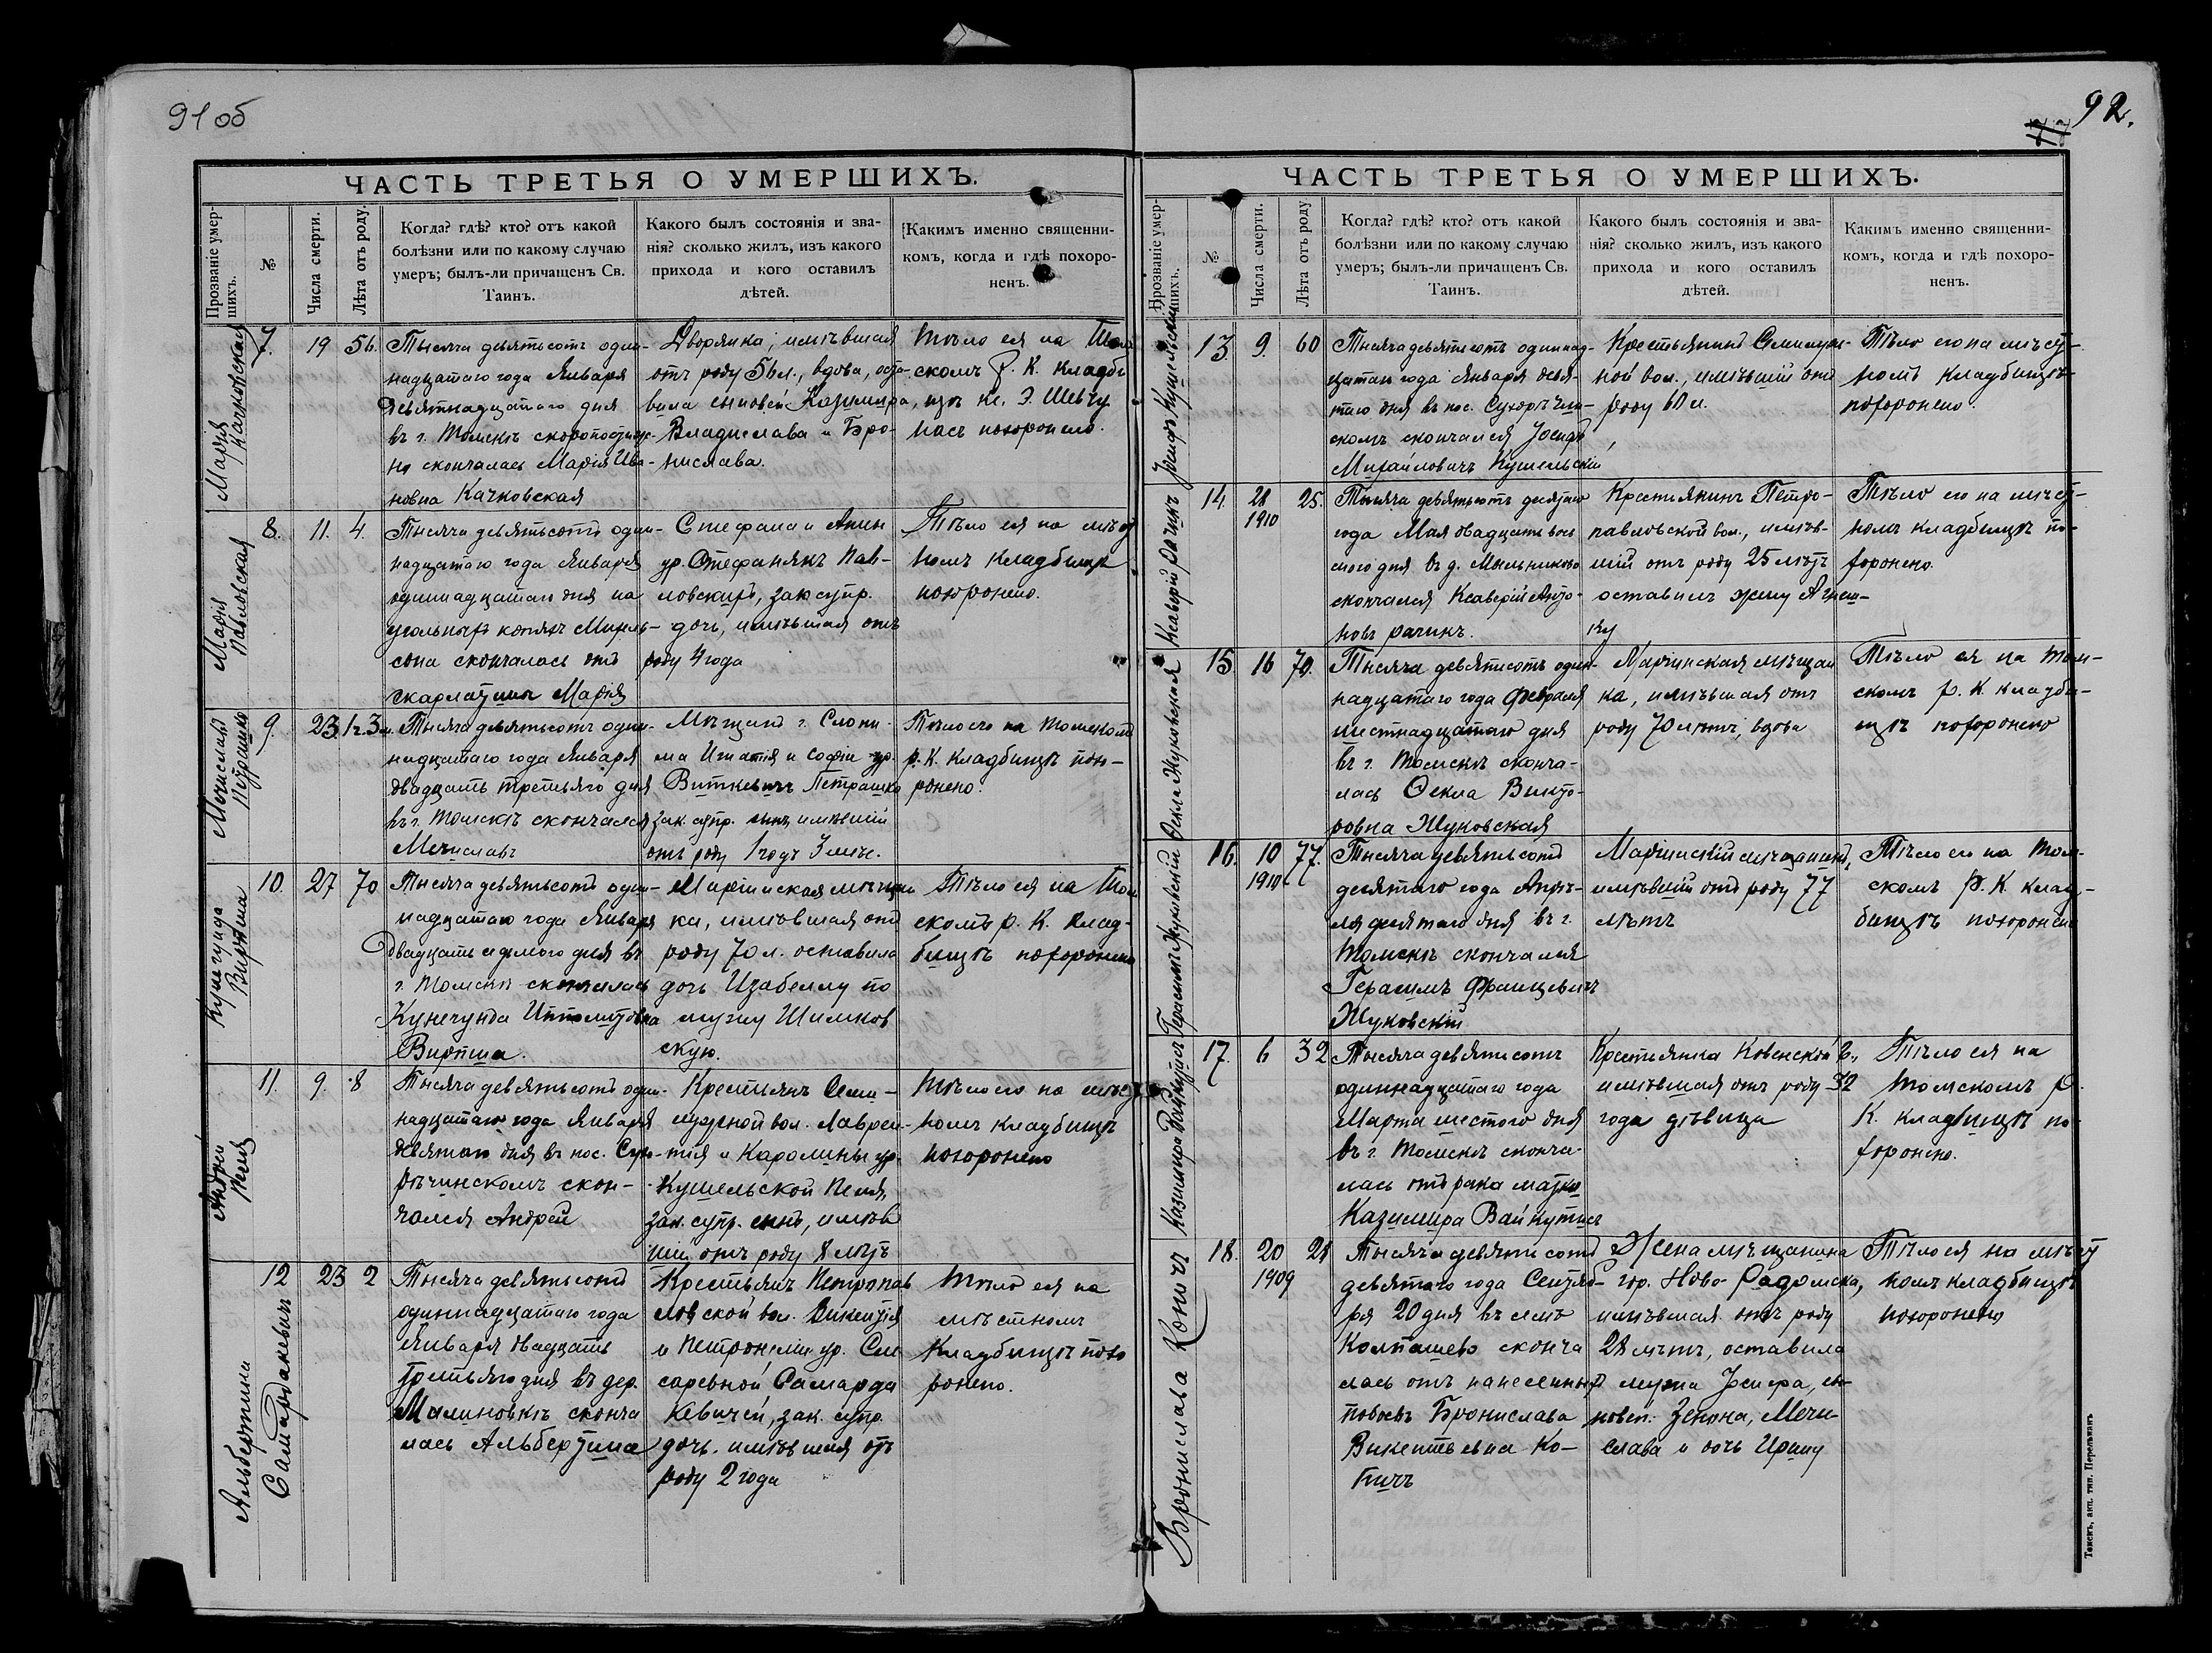 91 об
ЧАСТЬ ТРЕТЬЯ О УМЕРШИХЪ.
Прозваніе умер-
шихъ.
№
Числа смерти.
Лѣта отъ роду.
Когда? гдѣ? кто? отъ какой
болѣзни или по какому случаю
умеръ; былъ-ли причащенъ Св.
Таинъ.
Какого былъ состоянія и зва-
нія? сколько жилъ, изъ какого
прихода и кого оставилъ
дѣтей.
Какимъ именно священни-
комъ, когда и гдѣ похоро-
ненъ.
Марія
Качковская
7.
19
56.
Тысяча девятьсотъ один-
надцатаго года Января
девятнадцатаго дня
въ г. Томскѣ скоропостиж-
но скончалась Марія Ива-
новна Качковская
Дворянка, имѣвшая
отъ роду 56 л., вдова, оста-
вила сыновей Казимира,
Владислава и Бро-
нислава.
Тѣло ея на Том
скомъ Р. К. кладби
щѣ кс. Э. Шевчу
насъ похоронено.
Марія
Павловская
8.
11.
4.
Тысяча девятьсотъ один-
надцатаго года Января
одиннадцатаго дня на
угольныхъ копяхъ Михель-
сона скончалась отъ
скарлатины Марія
Стефана и Анны
ур. Стефанякъ Пав-
ловскихъ, зак. супр.
дочь, имѣвшая отъ
роду 4 года
Тѣло ея на мѣст
номъ кладбищѣ
похоронено.
Мечиславъ
Петрашко
9.
23
1 г. 3 м.
Тысяча девятьсотъ один-
надцатаго года Января
двадцать третьяго дня
въ г. Томскѣ скончался
Мечиславъ
Мѣщанъ г. Слони-
ма Игнатія и Софіи ур.
Виткевичъ Петрашко
зак. супр. сынъ, имѣвшій
отъ роду 1 годъ 3 мѣс.
Тѣло его на Томскомъ
р. К. кладбищѣ похо-
ронено.
Кунегунда
Вирпша
10.
27
70
Тысяча девятьсотъ один-
надцатаго года Января
двадцать седьмого дня въ
г. Томскѣ скончалась
Кунегунда Ипполитовна
Вирпша.
Маріинская мѣщан
ка, имѣвшая отъ
роду 70 л. оставила
дочь Изабеллу по
мужу Шимков
скую.
Тѣло ея на Том
скомъ р. К. клад-
бищѣ похоронено
Андрей
Пеля
11.
9.
8
Тысяча девятьсотъ один-
надцатаго года Января
девятаго дня въ пос. Сухо-
рѣчинскомъ скон-
чался Андрей
Крестьянъ Семи-
лужной вол. Лаврен-
тія и Каролины ур.
Кушельской Пеля,
зак. супр. сынъ, имѣв
шій отъ роду 8 лѣтъ
Тѣло его на мѣст
номъ кладбищѣ
похоронено
Альбертина
Самардакевичъ
12
23
2
Тысяча девятьсотъ
одиннадцатаго года
Января двадцать
третьяго дня въ дер.
Малиновкѣ сконча
лась Альбертина
Крестьянъ Петропав
ловской вол. Викентія
и Петронеліи ур. Сле
саревной Самарда
кевичей, зак. супр.
дочь. имѣвшая отъ
роду 2 года
Тѣло ея на
мѣстномъ
кладбищѣ похо
ронено.
92.
ЧАСТЬ ТРЕТЬЯ О УМЕРШИХЪ.
Прозваніе умер-
шихъ.
№
Числа смерти.
Лѣта отъ роду
Когда? гдѣ? кто? отъ какой
болѣзни или по какому случаю
умеръ; былъ-ли причащенъ Св.
Таинъ.
Какого былъ состоянія и зва-
нія? сколько жилъ, изъ какого
прихода и кого оставилъ
дѣтей.
Какимъ именно священни-
комъ, когда и гдѣ похоро-
ненъ.
Іосифъ Кушельскій
13
9.
60
Тысяча девятьсотъ одиннад-
цатаго года Января девя-
таго дня въ пос. Сухорѣчин-
скомъ скончался Іосифъ
Михайловичъ Кушельскій
Крестьянинъ Семилуж-
ной вол., имѣвшій отъ
роду 60 л.
Тѣло его на мѣст-
номъ кладбищѣ
похоронено.
Ксаверій Рачинъ
14.
28
1910
25.
Тысяча девятьсотъ десятаго
года Мая двадцать вось
мого дня въ д. Мыльниково
скончался Ксаверій Анто-
новъ Рачинъ.
Крестьянинъ Петро-
павловской вол., имѣв-
шій отъ роду 25 лѣтъ
оставилъ жену Агнеш-
ку
Тѣло его на мѣст-
номъ кладбищѣ по-
хоронено.
Ѳекла Жуковская
15
16
70.
Тысяча девятьсотъ один-
надцатаго года Февраля
шестнадцатаго дня
въ г. Томскѣ сконча-
лась Ѳекла Викто-
ровна Жуковская
Маріинская мѣщан
ка, имѣвшая отъ
роду 70 лѣтъ, вдова
Тѣло ея на Том-
скомъ р. К. кладби-
щѣ похоронено
Герасимъ Жуковскій
16.
10
1910
77.
Тысяча девятьсотъ
десятаго года Апрѣ-
ля десятаго дня въ г.
Томскѣ скончался
Герасимъ Францевичъ
Жуковскій
Маріинскій мѣщанинъ,
имѣвшій отъ роду 77
лѣтъ
Тѣло его на Том-
скомъ Р. К. клад-
бищѣ похоронено
Казимира Вайкутисъ
17.
6
32
Тысяча девятьсотъ
одиннадцатаго года
Марта шестого дня
въ г. Томскѣ сконча-
лась отъ рака матки
Казимира Вайкутисъ
Крестьянка Ковенской г.,
имѣвшая отъ роду 32
года дѣвица
Тѣло ея на
Томскомъ р.
К. кладбищѣ по-
хоронено.
Бронислава Копичъ
18.
20
1909
28
Тысяча девятьсотъ
девятаго года Сентяб-
ря 20 дня въ селѣ
Колпашево сконча
лась отъ нанесенныхъ
побоевъ Бронислава
Викентьевна Ко-
пичъ
Жена мѣщанина
гор. Ново-Радомска,
имѣвшая отъ роду
28 лѣтъ, оставила
мужа Іосифа, сы-
новей: Зенона, Мечи-
слава и дочь Ирину
Тѣло ея на мѣст
номъ кладбищѣ
похоронено
Томскъ, акц. тип. Перельманъ